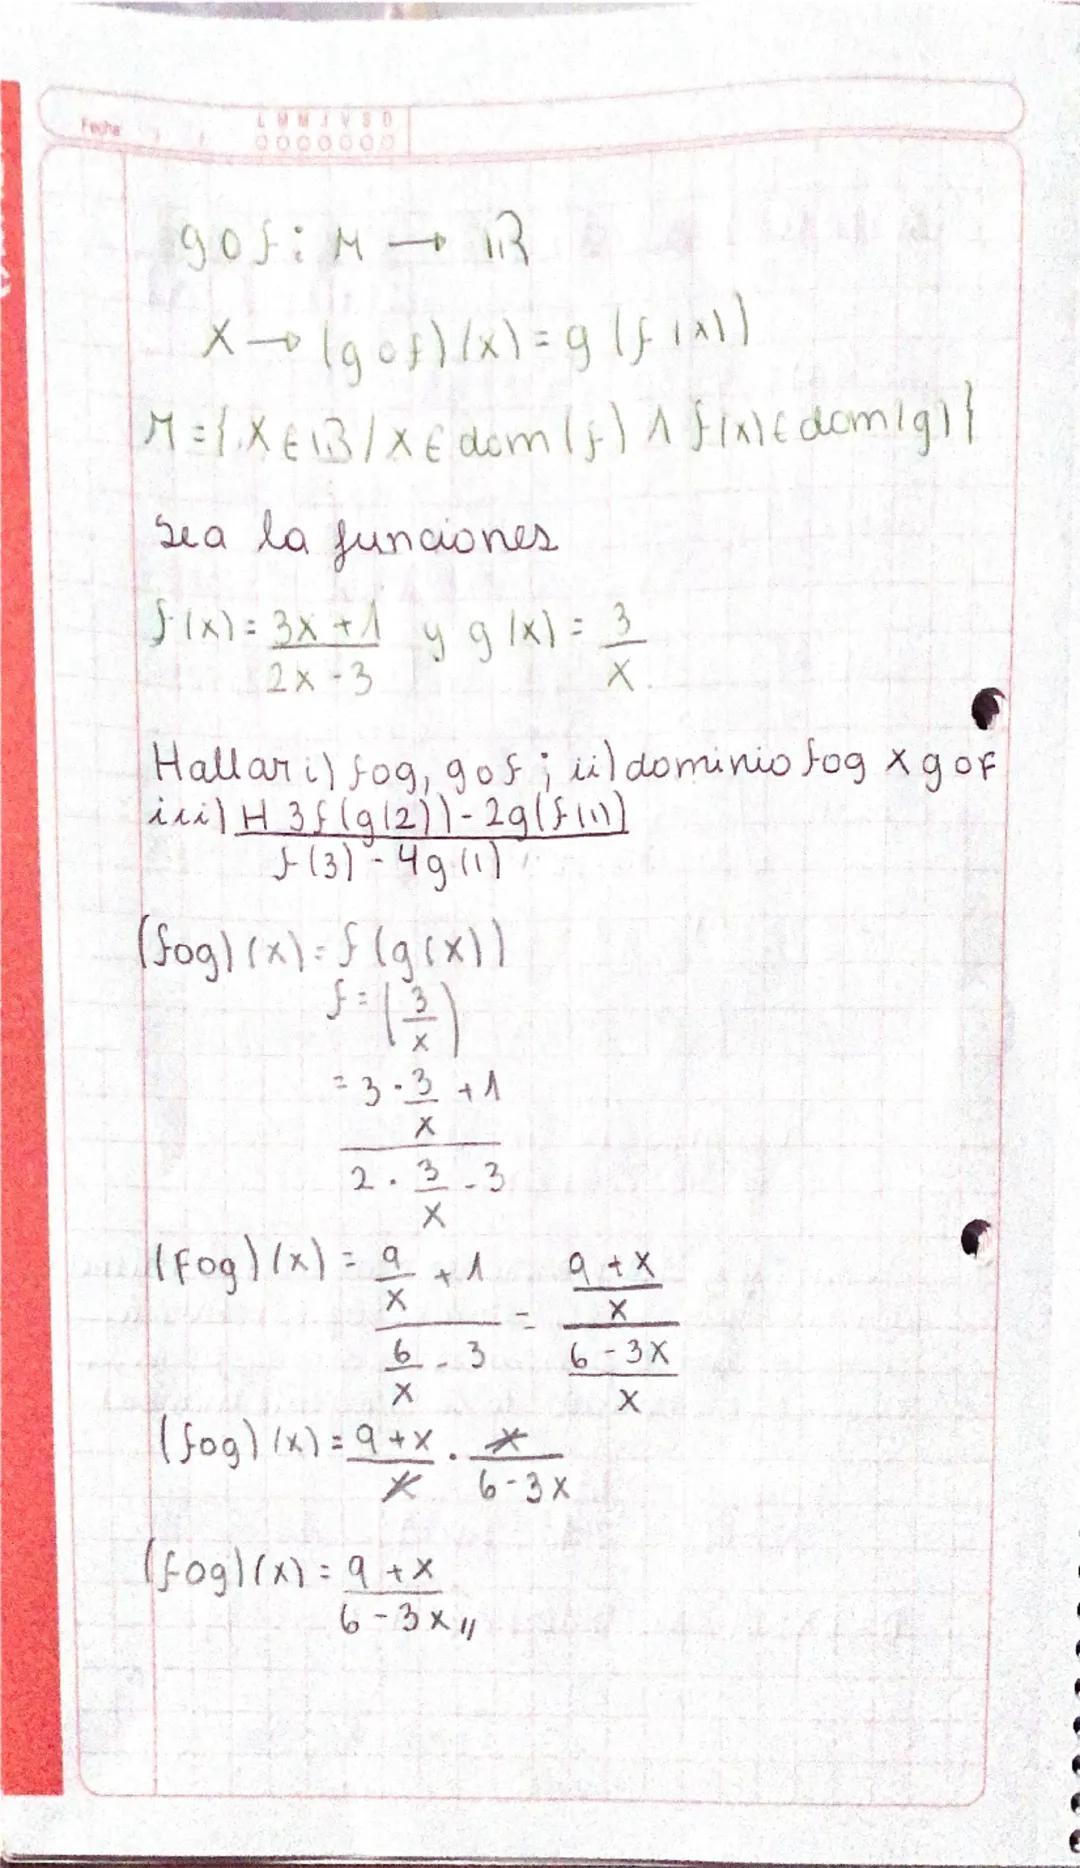 Fecha L M M J V S D
gof: M → IR
X → (gof)(x) = g(f(x))
M = {X ∈ IR / X ∈ dom(f) ∧ f(x) ∈ dom(g)}
Sea la funciones
f(x) = (3x + 1)/(2x - 3) y g(x) = 3/x.
Hallar i) fog, gof ; ii) dominio fog x gof
iii) H (3f(g(2)) - 2g(f(1)))/(f(3) - 4g(1))
(fog)(x) = f(g(x))
f = (3/x)
= (3 · 3/x + 1)/(2 · 3/x - 3)
(fog)(x) = (9/x + 1)/(6/x - 3) = ((9 + x)/x)/((6 - 3x)/x)
(fog)(x) = (9 + x)/x · x/(6 - 3x)
(fog)(x) = (9 + x)/(6 - 3x) //